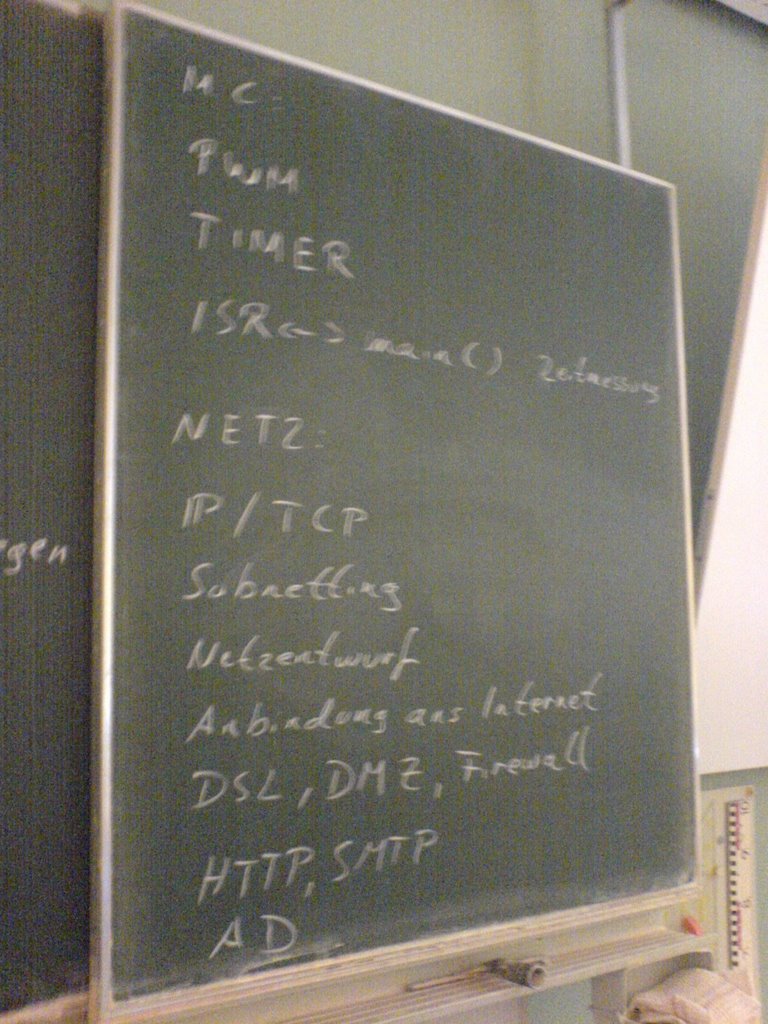 MC:
PWM
TIMER
ISR <-> main() Zeitmessung
NETZ:
IP/TCP
Subnetting
Netzentwurf
Anbindung ans Internet
DSL, DMZ, Firewall
HTTP, SMTP
AD
egen
10
9